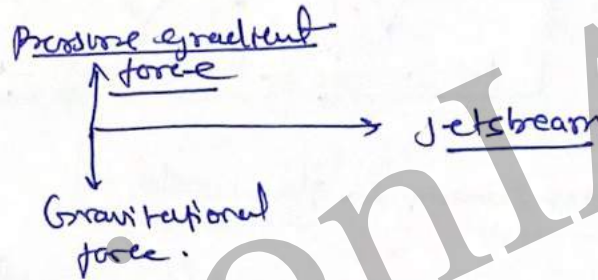 Pressure gradient
force
Jetstream
Gravitational
force.
onIA